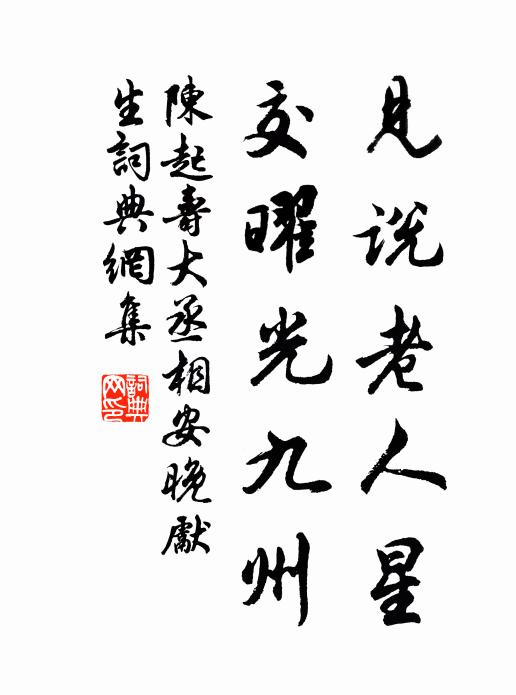 見說老人星
交曜光九州
陳起壽大丞相安晚獻
生詞典網集
詞典網印